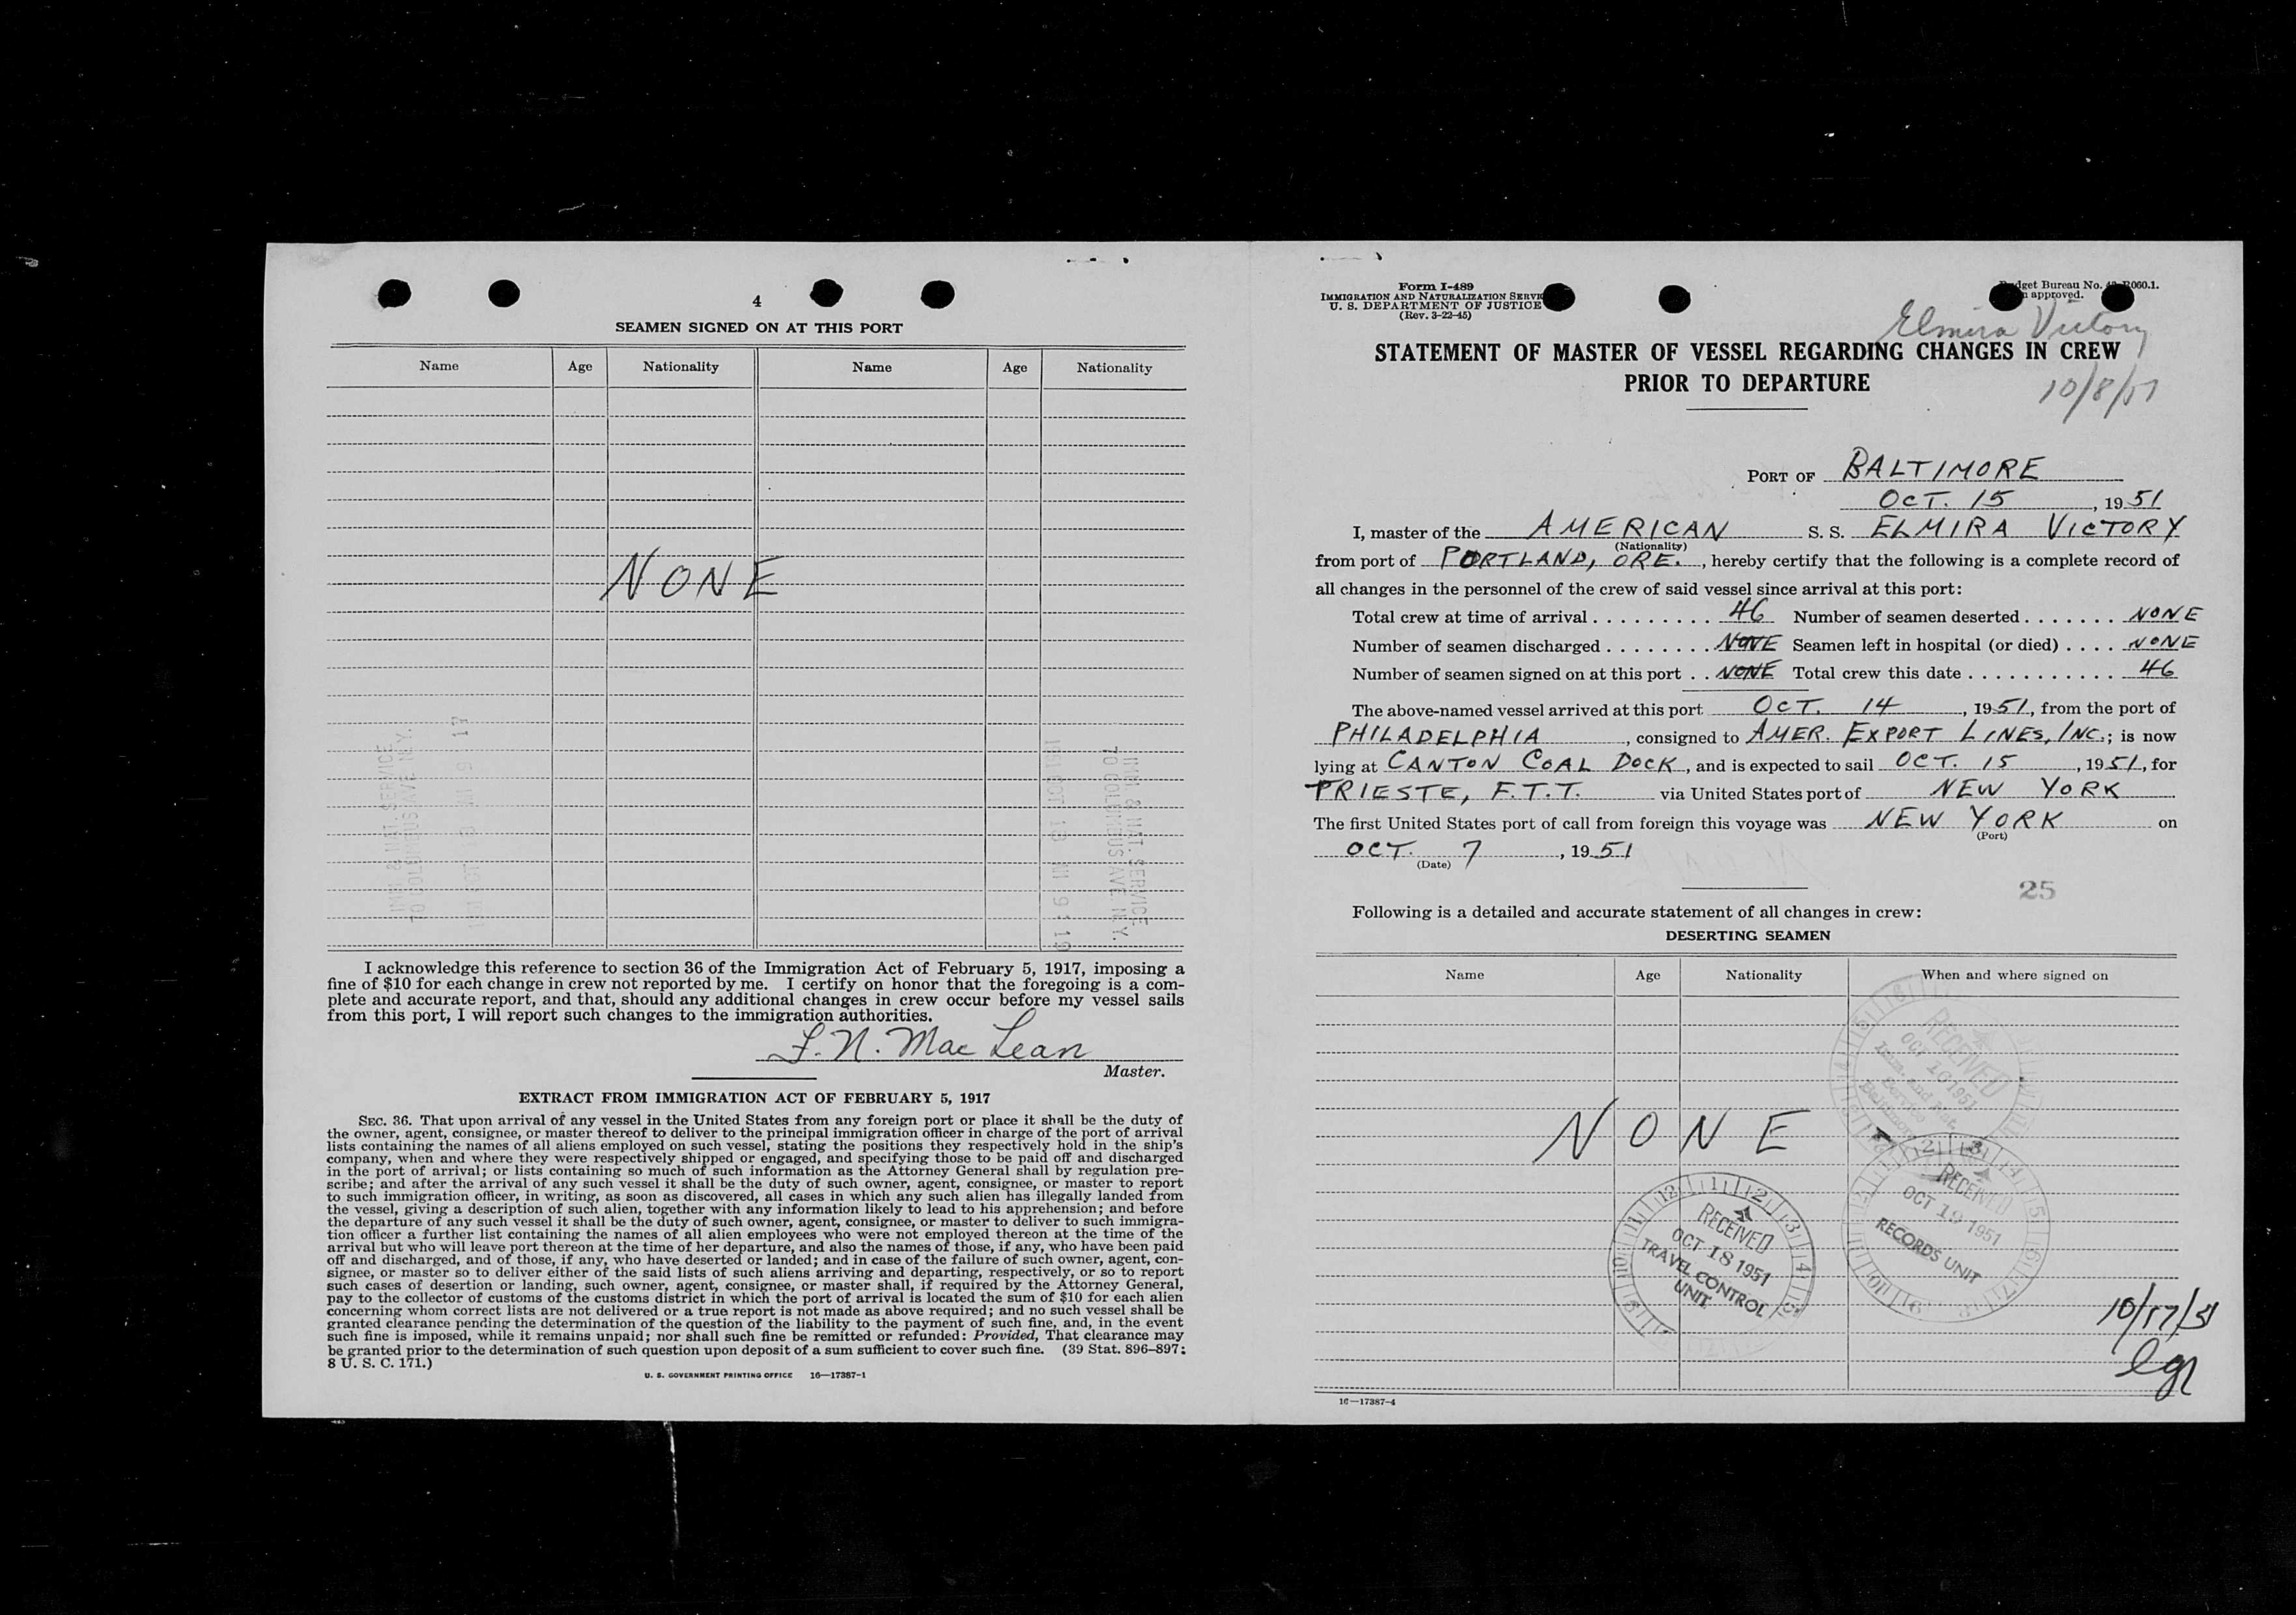 4
SEAMEN SIGNED ON AT THIS PORT
Name Age Nationality Name Age Nationality
NONE
IMM & NAT. SERVICE
70 COLUMBUS AVE. N.Y.
IMM. & NAT. SERVICE
70 COLUMBUS AVE. N.Y.
I acknowledge this reference to section 36 of the Immigration Act of February 5, 1917, imposing a
fine of $10 for each change in crew not reported by me. I certify on honor that the foregoing is a com-
plete and accurate report, and that, should any additional changes in crew occur before my vessel sails
from this port, I will report such changes to the immigration authorities.
F. N. Mac Lean
Master.
EXTRACT FROM IMMIGRATION ACT OF FEBRUARY 5, 1917
SEC. 36. That upon arrival of any vessel in the United States from any foreign port or place it shall be the duty of
the owner, agent, consignee, or master thereof to deliver to the principal immigration officer in charge of the port of arrival
lists containing the names of all aliens employed on such vessel, stating the positions they respectively hold in the ship's
company, when and where they were respectively shipped or engaged, and specifying those to be paid off and discharged
in the port of arrival; or lists containing so much of such information as the Attorney General shall by regulation pre-
scribe; and after the arrival of any such vessel it shall be the duty of such owner, agent, consignee, or master to report
to such immigration officer, in writing, as soon as discovered, all cases in which any such alien has illegally landed from
the vessel, giving a description of such alien, together with any information likely to lead to his apprehension; and before
the departure of any such vessel it shall be the duty of such owner, agent, consignee, or master to deliver to such immigra-
tion officer a further list containing the names of all alien employees who were not employed thereon at the time of the
arrival but who will leave port thereon at the time of her departure, and also the names of those, if any, who have been paid
off and discharged, and of those, if any, who have deserted or landed; and in case of the failure of such owner, agent, con-
signee, or master so to deliver either of the said lists of such aliens arriving and departing, respectively, or so to report
such cases of desertion or landing, such owner, agent, consignee, or master shall, if required by the Attorney General,
pay to the collector of customs of the customs district in which the port of arrival is located the sum of $10 for each alien
concerning whom correct lists are not delivered or a true report is not made as above required; and no such vessel shall be
granted clearance pending the determination of the question of the liability to the payment of such fine, and, in the event
such fine is imposed, while it remains unpaid; nor shall such fine be remitted or refunded: Provided, That clearance may
be granted prior to the determination of such question upon deposit of a sum sufficient to cover such fine. (39 Stat. 896–897;
8 U. S. C. 171.)
U. S. GOVERNMENT PRINTING OFFICE 16—17387-1
Form I-489
IMMIGRATION AND NATURALIZATION SERVI
U. S. DEPARTMENT OF JUSTICE
(Rev. 3-22-45)
dget Bureau No. R060.1.
approved.
Elmira Victory
STATEMENT OF MASTER OF VESSEL REGARDING CHANGES IN CREW
PRIOR TO DEPARTURE
10/8/51
PORT OF BALTIMORE
OCT. 15, 1951
I, master of the AMERICAN S. S. ELMIRA VICTORY
(Nationality)
from port of PORTLAND, ORE., hereby certify that the following is a complete record of
all changes in the personnel of the crew of said vessel since arrival at this port:
Total crew at time of arrival . . . . . . . . . 46 Number of seamen deserted . . . . . . . NONE
Number of seamen discharged . . . . . . . . NONE Seamen left in hospital (or died) . . . . NONE
Number of seamen signed on at this port . . NONE Total crew this date . . . . . . . . . . . 46
The above-named vessel arrived at this port OCT. 14, 1951, from the port of
PHILADELPHIA, consigned to AMER. EXPORT LINES, INC.; is now
lying at CANTON COAL DOCK, and is expected to sail OCT. 15, 1951, for
TRIESTE, F.T.T. via United States port of NEW YORK
The first United States port of call from foreign this voyage was NEW YORK on
(Port)
OCT. 7, 1951
(Date)
25
Following is a detailed and accurate statement of all changes in crew:
DESERTING SEAMEN
Name Age Nationality When and where signed on
RECEIVED
OCT 16 1951
Imm. and Nat.
Service
Baltimore
NONE
RECEIVED
OCT 18 1951
TRAVEL CONTROL
UNIT
RECEIVED
OCT 19 1951
RECORDS UNIT
10/17/51
16—17387-4